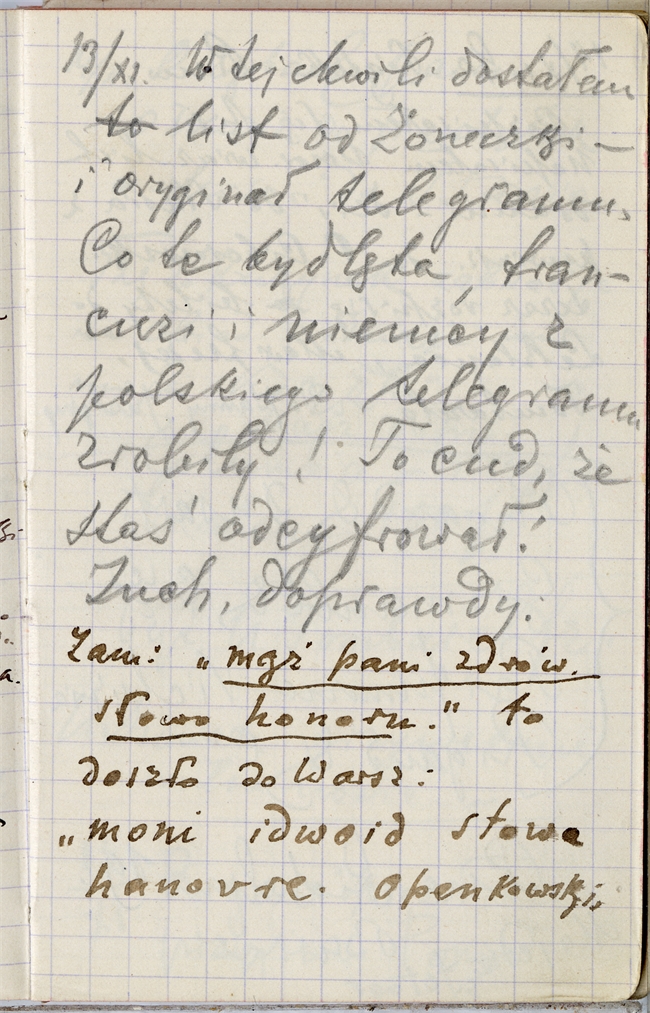 13/XI. W tej chwili dostałem
to list od Żoneczki –
i oryginał telegramu.
Co te bydlęta, fran-
cuzi i niemcy z
polskiego telegramu
zrobiły! To cud, że
Staś odcyfrował!
Zuch, doprawdy.
Zam: „mąż pani zdrów.
słowo honoru." to
doszło do Warsz:
„moni idwoid stowa
hanovre. Openkowski.